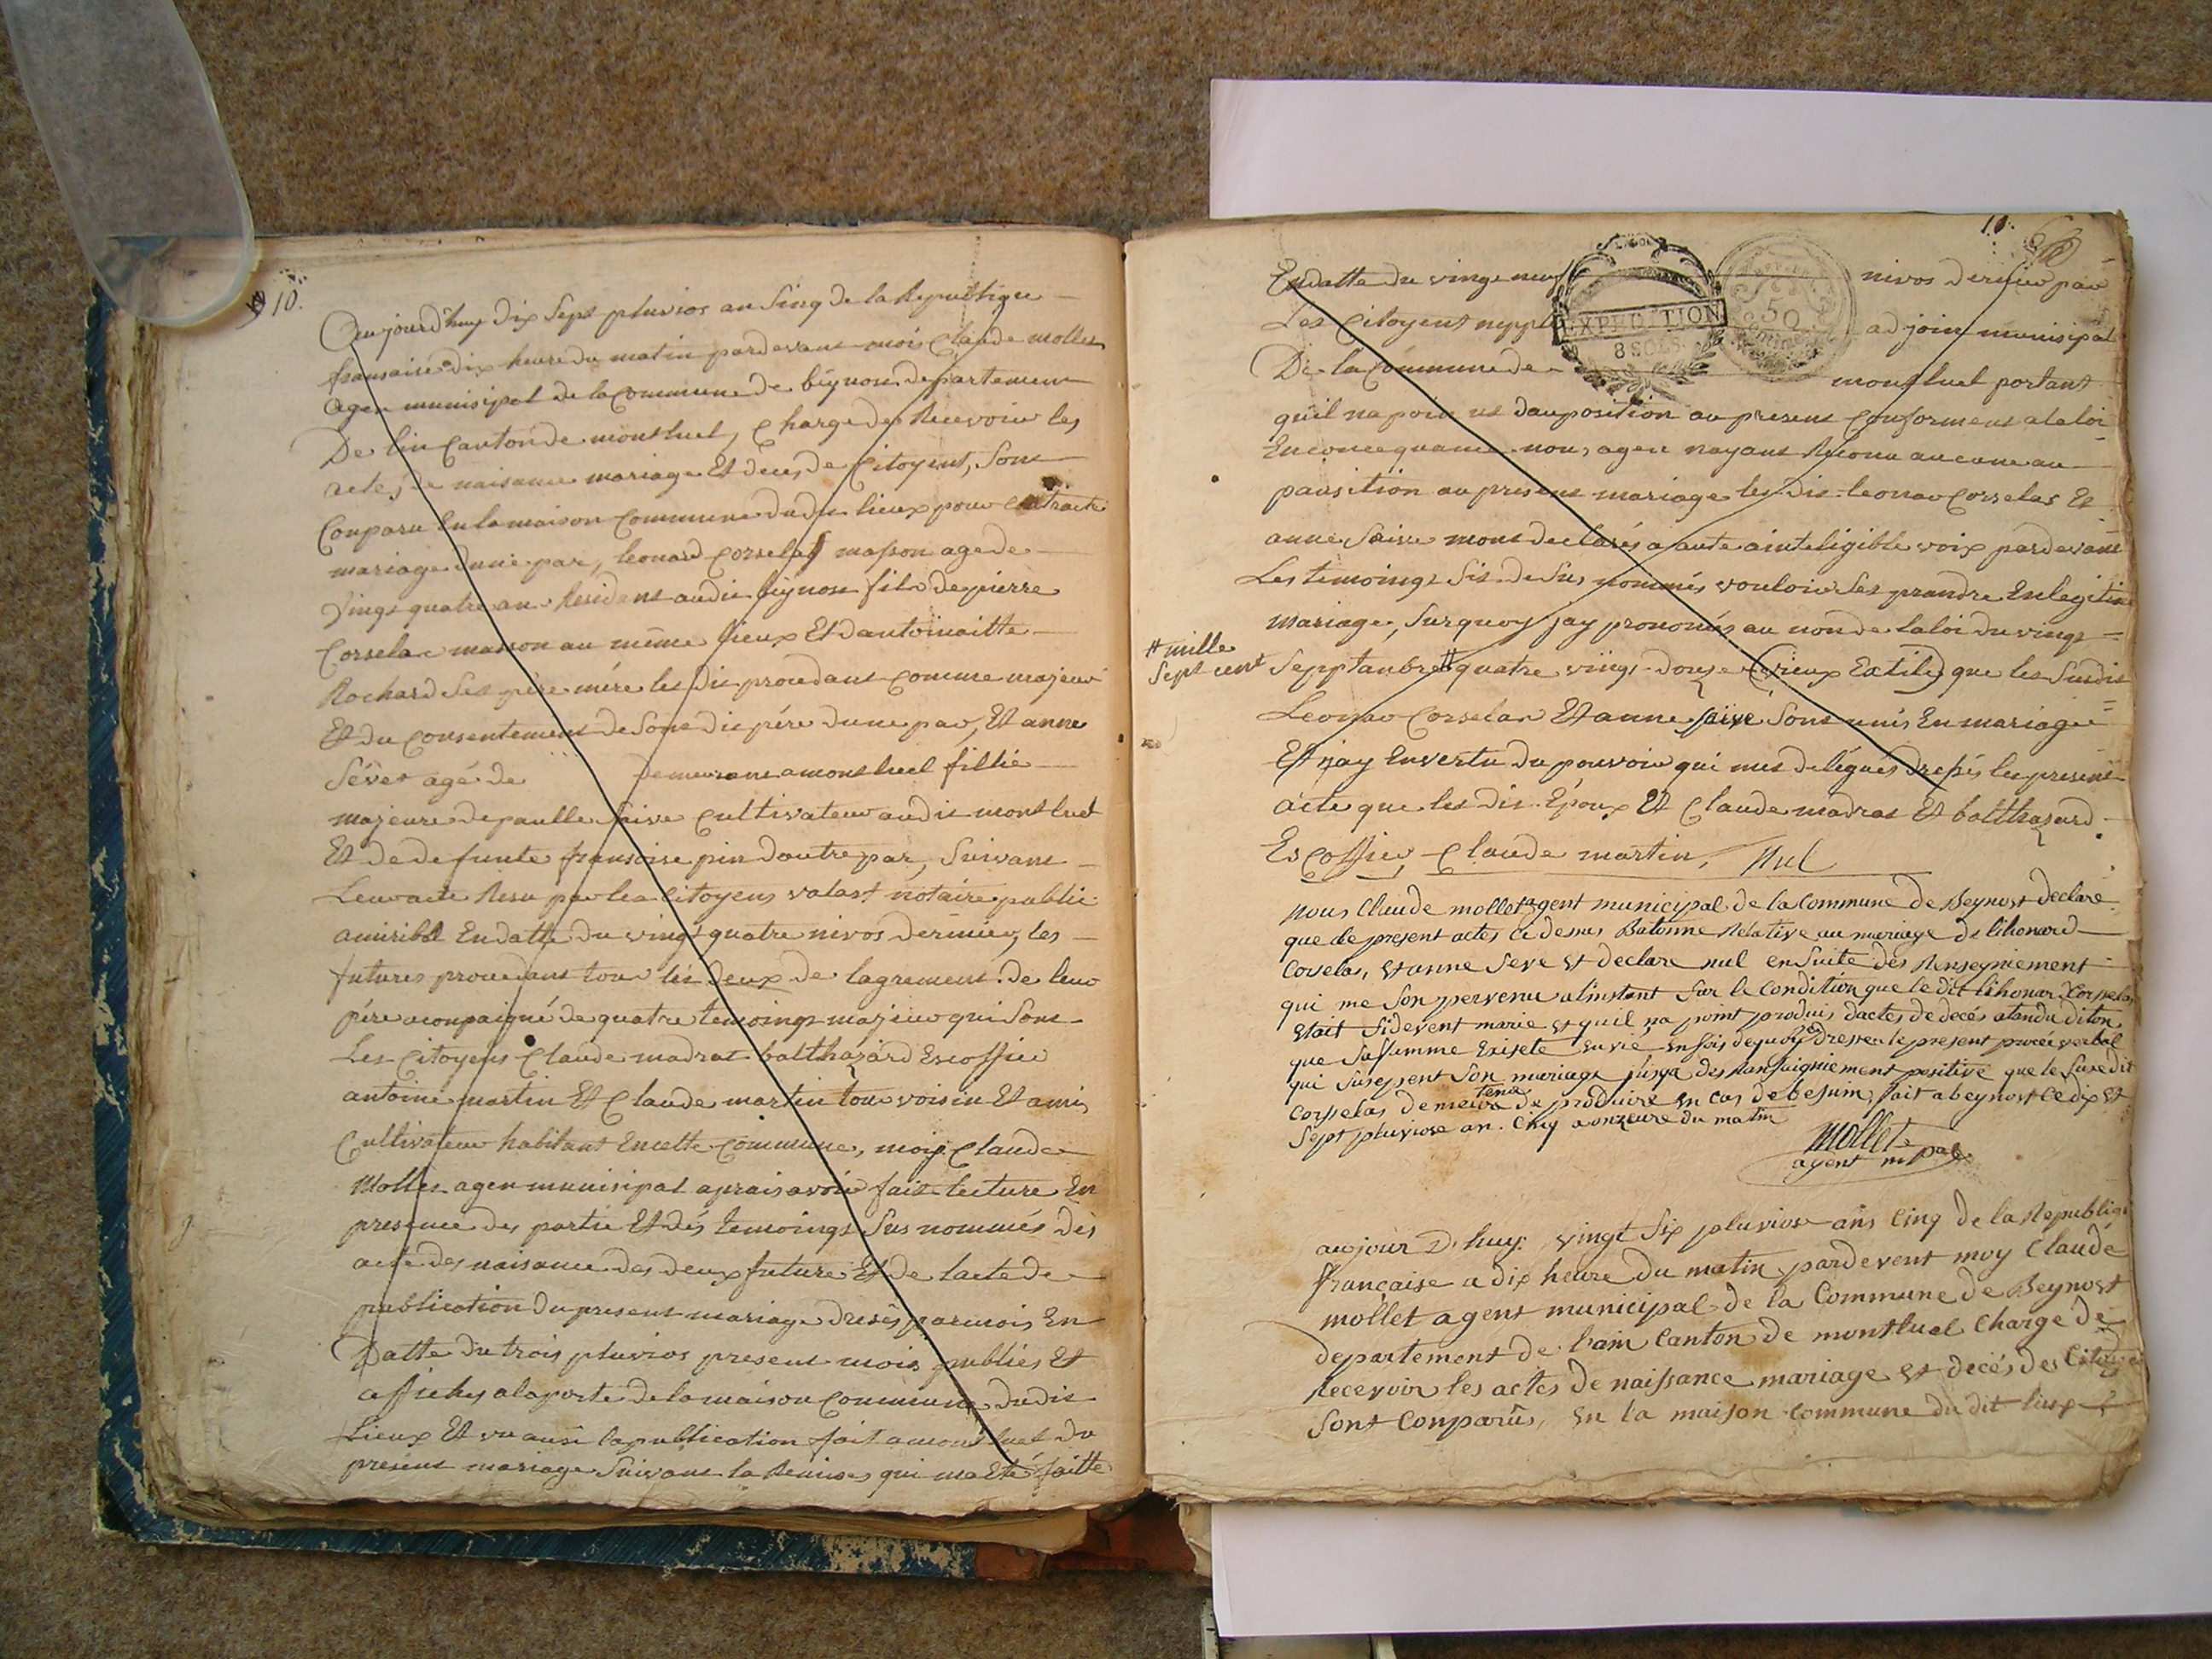 10.
Aujourd'huy dix sept pluvios an sinq de la Republique
fransaise dix heure du matin pardevant moi Claude mollet
agen munisipal de la Commune de beynost departement
De lin Canton de montluel, chargé de Recevoir les
acte, de naisance mariage Et deces de Citoyent, sont
Conparu En la maison Commune dudit lieux pour Contracté
mariage dune par, leonard Corselas masson age de
vingt quatre an Residant audit beynost fils de pierre
Corselas masson au même lieux Et dantoinaitte
Rochard ses père mère les dis prouedant comme majeur
Et du consentement de sont dit père dune par, Et anne
séve agé de demeurant a montluel fillie
majeure de paulle saive Cultivateur audit montluel
Et de defunte fransoise pin doutre par, suivant
Leur acte Resu par les Citoyens valast notaire public
amiribel En datte du vingt quatre nivos dernier, les
futures prouedant tous les deux de lagrement de leur
père aconpaigné de quatre temoings majeur qui sont
Les Citoyens Claude madrat balthazard Escoffier
antoine martin Et Claude martin tous voisin Et amis
Cultivateur habitant En cette Commune, moi Claude
Mollet agen munisipal aprais avoir fait lecture En
presence des partie Et dés temoings sus nommés dés
acte des naisance des deux future Et de lacte de
publication du present mariage dresés par mois En
Datte du trois pluvios present mois publiés Et
affiches a la porte de la maison Commune dudit
Lieux Et vu ausi la publication fait a montluel du
present mariage suivant la Remise qui ma Eté faitte
10.
En datte du vingt neuf nivos dernier par
Les Citoyent adjoin munisipal
De la Commune de montluel portant
EXPEDITION
8 SOLS.
50
quil na poin dauposition au present Conforment a la loi
En concequance nous agen nayant Reconu aucune au
pausition au present mariage les dis leonar Corselas Et
anne saive mont declarés a aute a inteligible voix pardevant
Les temoings sis desus nommés vouloir ses prandre En legitim
mariage, surquoy jay prononcés au non de la loi du vingt
# mille
sept cent
septtanbre # quatre vingt douse (vieux Extile) que les susdit
Leonar Corselas Et anne saive sont unis En mariage
Et jay En vertu du pouvoir qui mes delégués dressés le present
acte que les dis Époux Et Claude madrat Et balthazard
Escoffier, Claude martin, Nul
Nous Claude mollet agent municipal de la Commune de Beynost declare
que le present actes Ci desus Batonne Relative au mariage de lihonard
Corselas, et anne seve Et declare nul en suite des Renseigniement
qui me son pervenu a linstant sur le Condition que le dit lihonar Corselas
Etait sidevent marie et quil na point produis dactes de deces atandu diton
que sa famme Existe en vie en fois dequoy dresser le present proces verbal
qui suspent son mariage jusqa des Ransaigniement positive que le susdit
Corselas demeure tenu de produire en cas de besuin, fait a beynost le dix et
sept pluviose an Cinq a onzeure du matin
Mollet
agent mpal.
aujour D'huy vingt six pluviose ans Cinq de la Republiq
française a dix heure du matin pardevent moy Claude
mollet agent municipal de la Commune de Beynost
departement de l'ain Canton de montluel Charge de
Recevoir les actes de naissance mariage et decés des Citoye
sont Conparûs, en la maison Commune du dit lieux